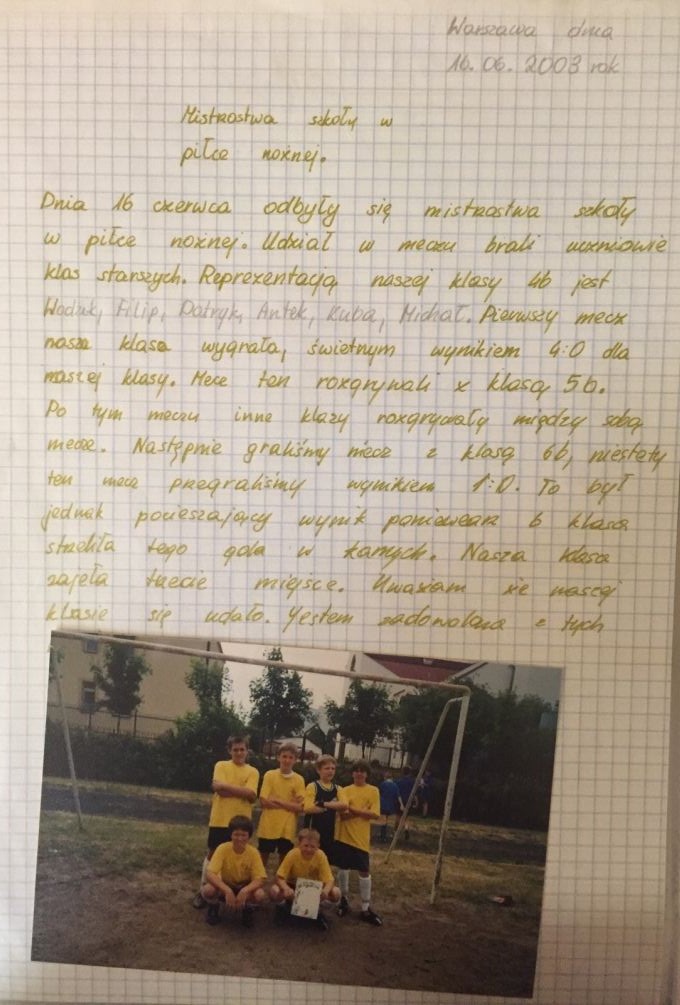 Warszawa dnia
16.06.2003 rok
Mistrostwa szkoły w
piłce nożnej.
Dnia 16 czerwca odbyły się mistrostwa szkoły
w piłce nożnej. Udział w meczu brali uczniowie
klas starszych. Reprezentacją naszej klasy 4b jest
Filip, Patryk, Antek, Kuba, Michał. Pierwszy mecz
nasza klasa wygrała, świetnym wynikiem 4:0 dla
naszej klasy. Mecz ten rozgrywali z klasą 5b.
Po tym meczu inne klazy rozgrywały między sobą
mecze. Następnie graliśmy mecz z klasą 6b, niestety
ten mecz pregraliśmy wynikiem 1:0. To był
jednak pocieszający wynik poniewearz 6 klasa
strzeliła tego gola w karnych. Nasza klasa
zajeła trzecie miejsce. Uważam że naszej
klasie się udało. Jestem zadowolona z tych